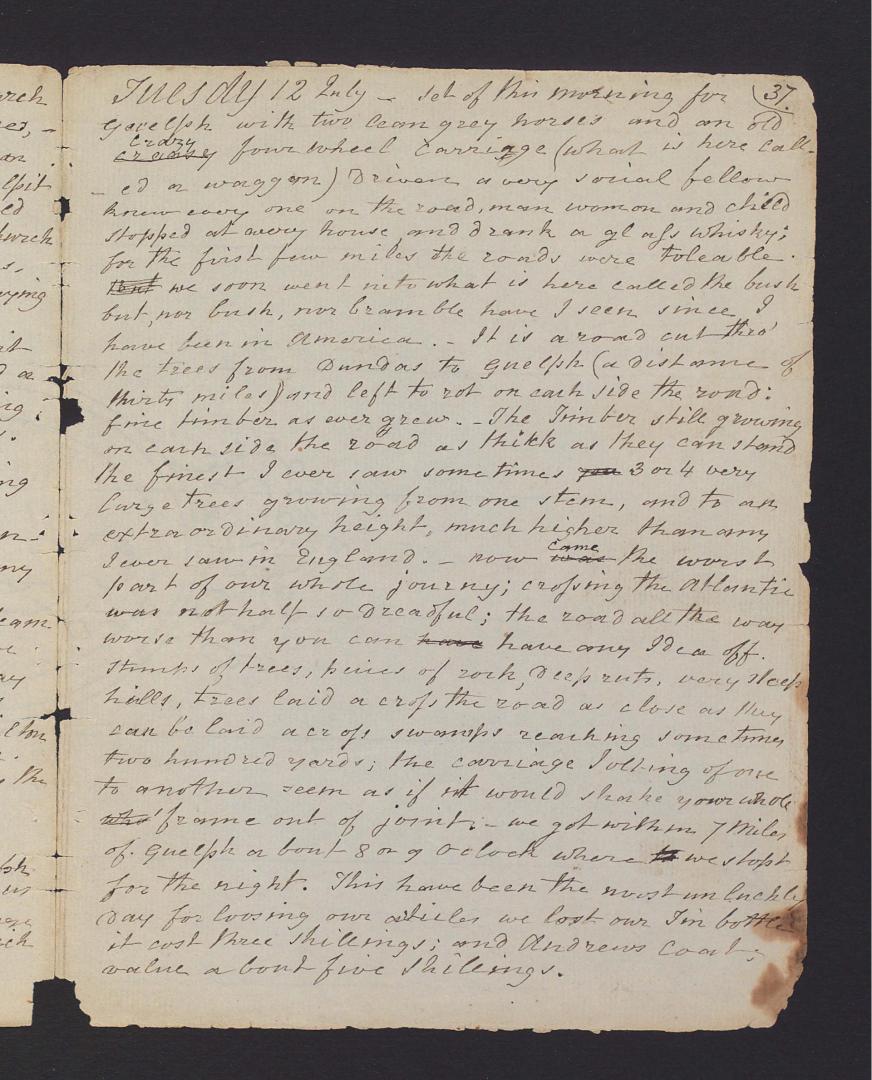 37.
Tuesday 12 July - set of this morning for
Guelph with two lean grey horses and an old
crazy
creasey four wheel Carriage (what is here call-
ed a waggon) Driven a very social fellow
knew every one on the road, man woman and child
stopped at every house and drank a glass whisky;
for the first few miles the roads were toleable.
but we soon went into what is here called the bush
but, nor bush, nor bramble have I seen since I
have been in America. - It is a road cut thro'
the trees from Dundas to Guelph (a distance of
thirty miles) and left to rot on each side the road:
fine timber as ever grew. - The Timber still growing
on each side the road as thick as they can stand
the finest I ever saw sometimes you 3 or 4 very
large trees growing from one stem, and to an
extraordinary height, much higher than any
I ever saw in England. - now was the worst
came
part of our whole journy; crossing the Atlantic
was not half so Dreadful; the road all the way
worse than you can have have any Idea off.
stumps of trees, peices of rock, Deep ruts, very steep
hills, trees laid across the road as close as they
can be laid across swamps reaching sometimes
two hundred yards; the carriage Jolting of one
to another seem as if it would shake your whole
who' frame out of joint; - we got within 7 Miles
of Guelph about 8 or 9 Oclock where we stopt
for the night. This have been the most unluckly
Day for loosing our aticles we lost our Tin bottle
it cost three shillings; and Andrews Coat;
value about five shillings.